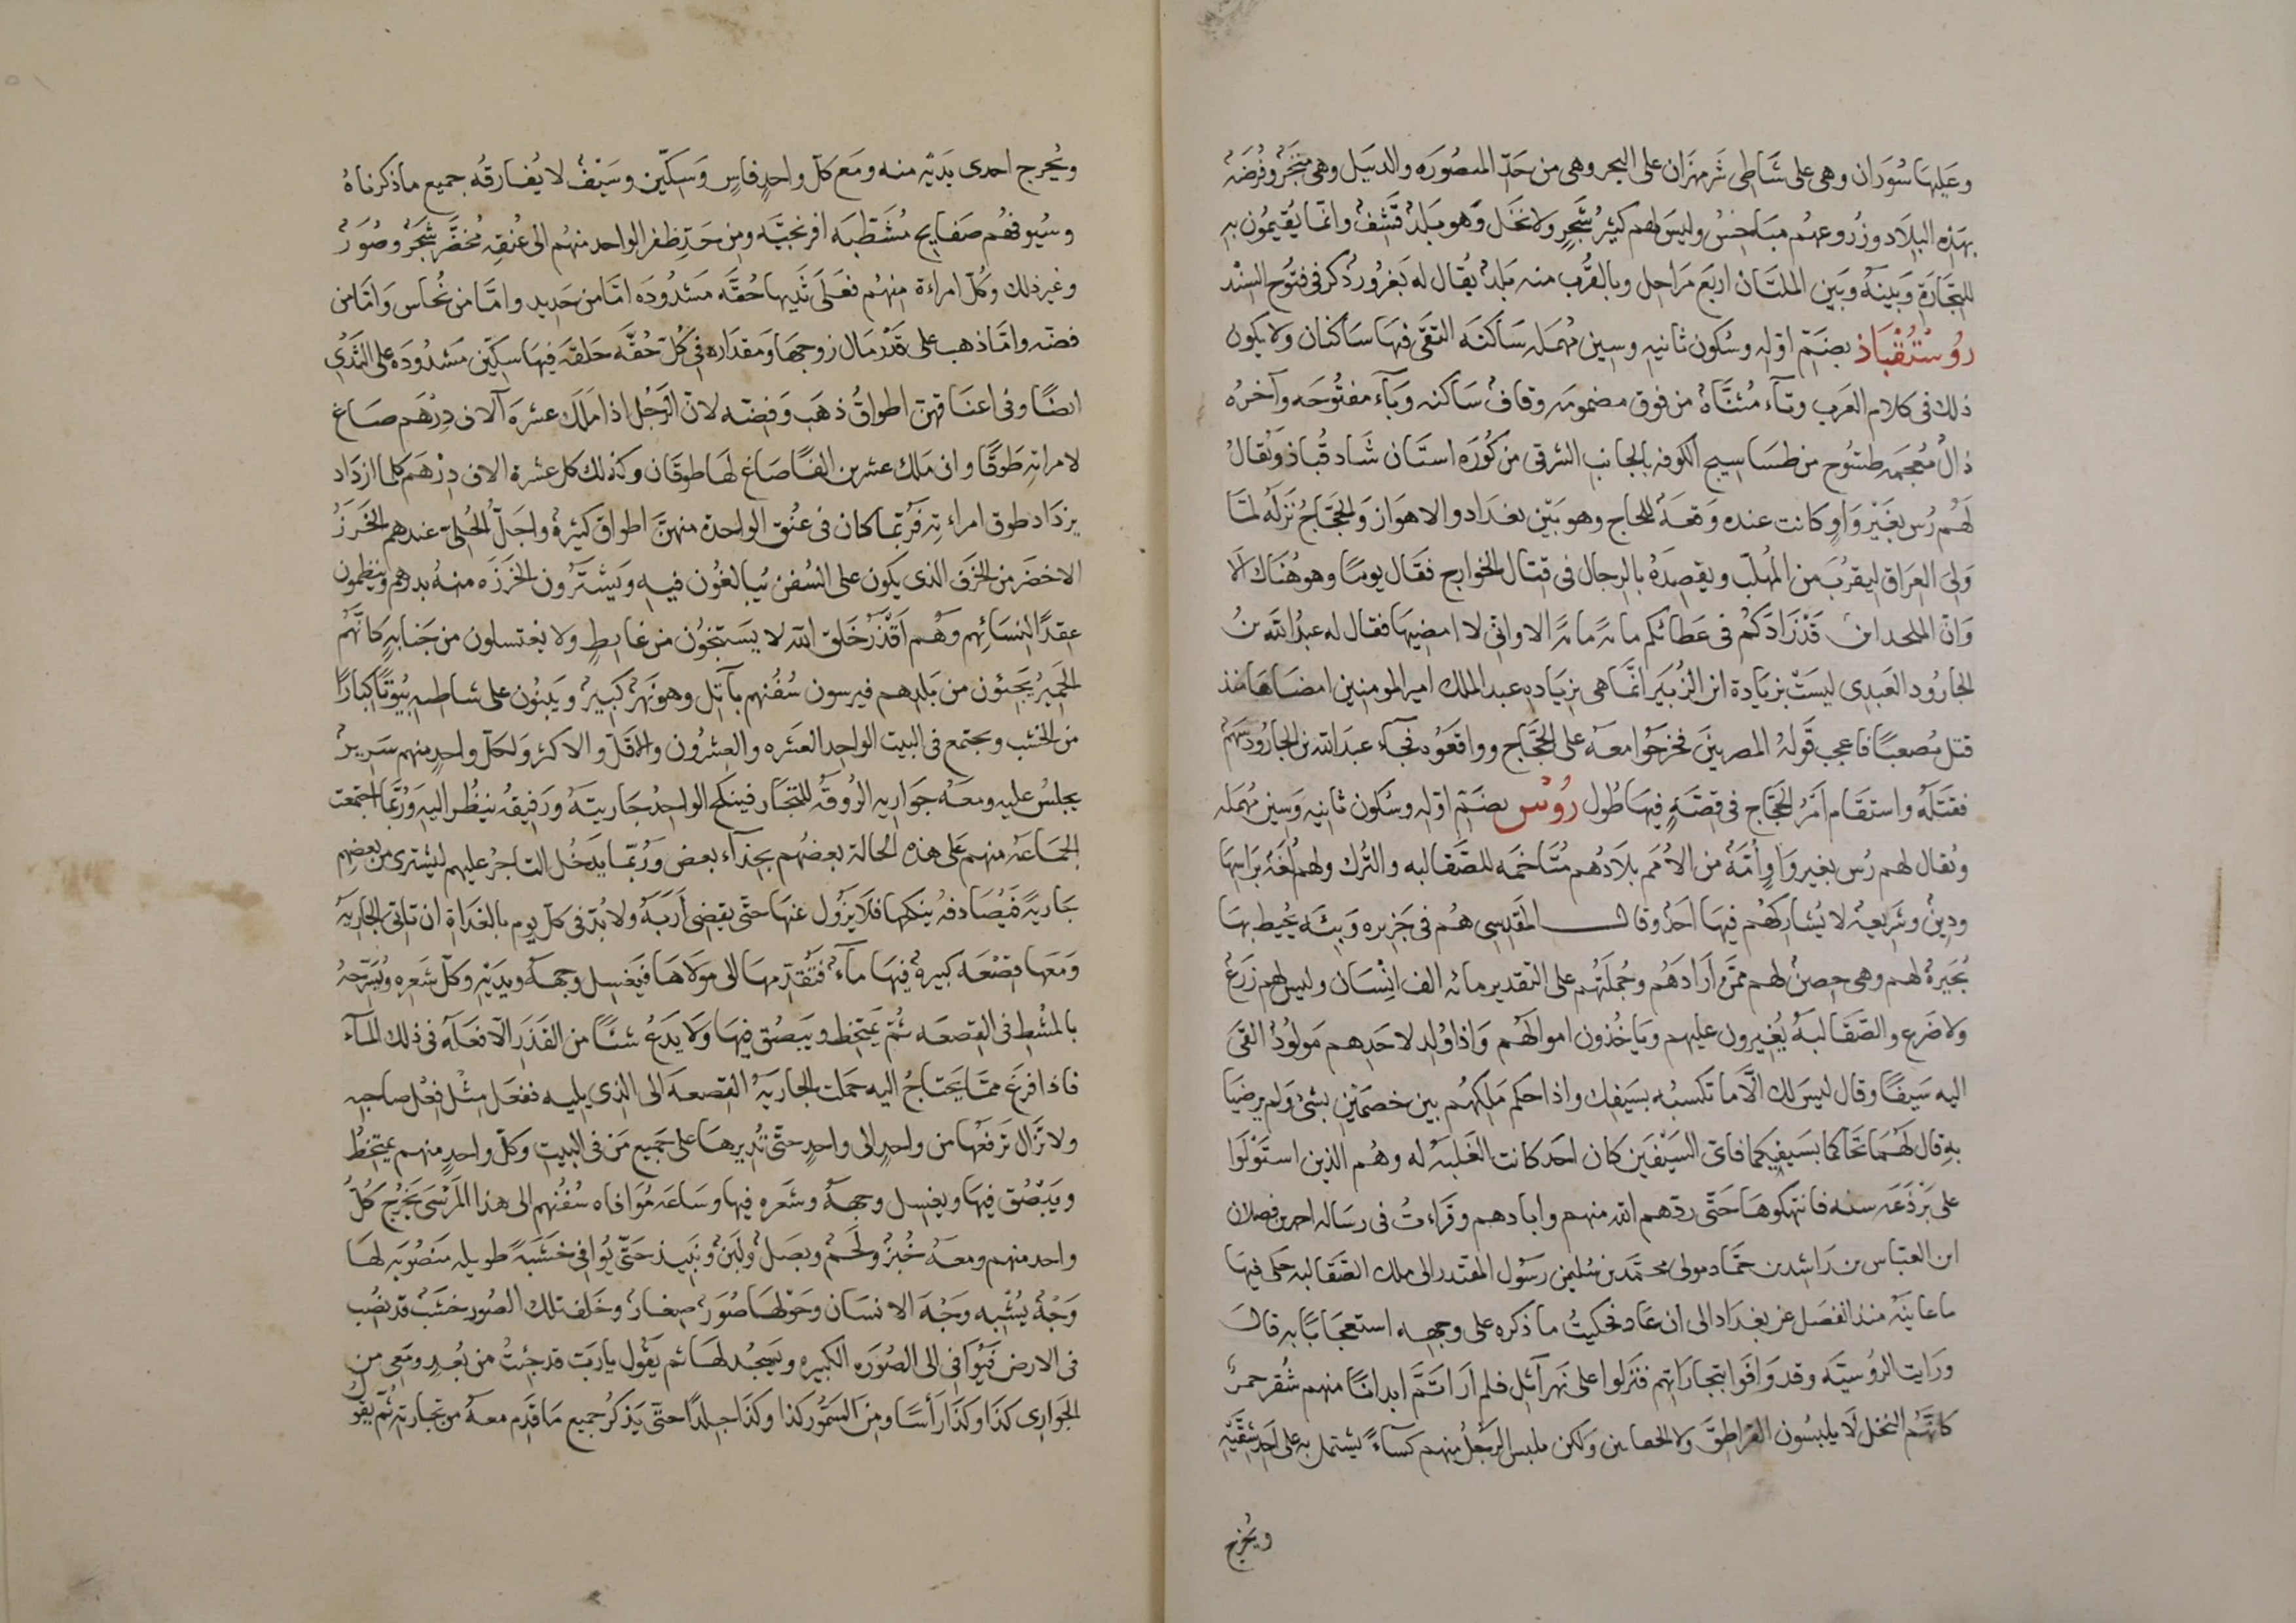 وعليها سُوران وهى على شاطى شَرمهران على البحر وهى من حدّ المنصوره والدبيل وهى متجر وفُرضَة
بهذه البلاد وزُروعهم مباخسُ وليس لهم كثيرُ شجرٍ ولا نخل وهو بلدٌ قَشِفٌ وانما يُقيمُون به
للتجارة وبينه وبين الملتان اربع مَراحل وبالقُرب منه بلدٌ يُقال له بَغرُور ذكر فى فتُوح السِّند
رُوسْتُقْبَاذ بضَمّ اوّله وسُكون ثانيه وسين مُهمله ساكنَه التقى فيها ساكنان ولا يكون
ذلك فى كلام العرب وتآء مُثنّاة من فوق مضمومه وقاف ساكنه وبآء مفتُوحه وآخره
ذالٌ مُعجمه طسّوج من طسَاسيج الكوفه بالجانب الشرقى من كُورَه استان شاد قُباذ ويُقالُ
لَهُم رُس بغَيْر واوٍ كانت عنده وقعَةٌ للحاج وهو بَيْن بغدَاد والاهواز والحجّاجُ نَزَلَهُ لمّا
ولى العراق ليقرُبَ من المُهلّب ويقصِدَهُ بالرجال فى قتال الخوارج فقال يومًا وهو هُناك الا
وَانّ الملحد ابن قد زَادَكُم فى عَطائكم مائه مائه الا وانّى لا امضيها فقال له عبدُ الله بنُ
الجارُود العَبدِى ليستْ بزيادة ابن الزُبَير انّما هى بزياده عبد الملك امير المومنين امضاها منذ
قتل مُصعبًا فاعجب قَولهُ المصريينَ فخرجُوا معهُ على الحجّاج وواقعَوُه فجآء عبدَ الله بن الجارُود سَهم
فقتَلَهُ واستقَام امْرُ الحجّاج فى قصّه فيها طُول رُوْسْ بضَمّ اوّله وسُكون ثانيه وَسين مُهمَله
ويُقال لهم رُس بغير وَاوٍ أُمّةٌ من الاُمَم بلَادُهم مُتَاخمَه للصَّقالبه والتُرك ولهم لُغَة براسِها
ودينٌ وشَريعة لا يُشاركهُم فيها احَدٌ وقال المقدِسِى هُم فى جَزيره وَبئَه يُحيط بها
بُحَيرةٌ لهم وهى حِصنٌ لهم ممّن أرَادَهُم وجُملتُهم على التقدير مائه الف اِنْسَان وليس لهم زَرعٌ
ولا ضَرع والصَّقالبةُ يُغيرون عليهم ويأخُذون اموالهُم وَاذا وُلِد لاحَدهم مَولُودٌ القَى
اليه سَيفًا وقال ليس لك الّا ما تكسبُه بسَيفك واذا حكم مَلِكهُم بين خصمَيْن بشئ ولم يرضيَا
بهِ قال لهُمَا تحاكما بسَيفيكما فاىّ السَيْفَين كان احَد كانت الغلَبَة له وهُم الذين استَوْلَوا
على بَرْذَعَه سنه فانتهكوها حَتّى ردّهم الله منهم وابادهم وقَرأتُ فى رسَاله احمد بن فصلان
ابن العبّاس بن رَاشد بن حَمّاد مولى محمّد بن سُليمن رَسُول المقتدر الى ملك الصَّقالبه حكى فيها
ما عاينَهُ منذ انفصَل عن بغداد الى ان عَاد فحكيتُ ما ذكره على وجهه استعجابًا به قال
ورَايت الروُسيّه وقد وَافَوا بتجارَاتهم فنَزلوا على نهر آتِل فلم ارَ اتَمَّ ابدانًا منهم شُقر حمرٌ
كانّهُم النخل لَا يلبسُون القراطق ولا الخفاتين ولكن ملبس الرجُل منهم كسآءً يشتمل به على احد شقّيه
ويُخرج
ويُخرج احدى يَديْه منه ومَع كلّ واحدٍ فاسٍ وَسِكّين وسَيْفٌ لا يُفارقُه جميع ما ذكرناهُ
وسُيوفهُم صَفايح مُشطّبَه افرنجيّه ومِن حَدّ ظفر الواحد منهُم الى عُنُقه مُخضّر شَجَرٌ وصُوَرٌ
وغير ذلك وكلّ امراءة منهُم فعَلَى ثَديها حُقّه مَشدُودَه امّا من حَديد وامّا من نُحاس وَامّا من
فضّه وامّا ذهب على قَدْر مَال زوجها ومقدَاره فى كُلّ حُقَّه حَلقه فيها سكّين مَشدُودَه على الثّدى
ايضًا وفى اعنَاقهنّ اطواقُ ذهَب وَفضّه لانّ الرّجُل اذا مَلَك عشرَه آلاف دِرْهَم صَاغ
لامراته طَوقًا وان مَلَك عشرين الفًا صَاغ لها طوقان وكذلك كل عشرة الاف دِرهَم كلما ازدَاد
يزدَاد طوق امراءتهِ فرُبّما كان فى عنُق الواحدة منهنّ اطواق كثيرة واجَلُّ الحُلىّ عندهم الخَرَزُ
الاخضَر من الخَزَف الذى يكون على السُفن يُبالغُون فيه ويَشتَرُون الخَرزَه منهُ بدرهم وينظمون
عِقدًا لنسَائِهم وهُم اَقْذَرُ خَلق الله لا يستنجُون من غايطٍ ولا يغتسلون من جَنابهٍ كانّهُم
الحَمِيرُ يَجيؤن من بَلدهم فيرسون سُفُنهم بآتِل وهو نَهرٌ كَبيرٌ ويَبنُون على شاطيه بيُوتًا كبارًا
من الخشب ويجتمع فى البيت الواحد العَشره والعِشرُون والاقلّ والاكثر ولكلّ واحدٍ منهم سَريرٌ
يجلسُ عليه ومعَهُ جواريه الرُوقَة للتجّار فينكح الواحدُ جاريتهُ ورَفيقُه ينظُر اليه ورُبّما اجتمعت
الجماعَة منهم على هذه الحالة بعضُهم بحِذآء بعض ورُبّما يدخُل التاجرُ عليهم ليشترى من بعضهم
جاريةً فيُصَادفهُ ينكحها فلَا يزُول عنها حتّى يقضى اَرَبَهُ ولا بُدّ فى كلّ يوم بالغداة ان تاتى الجارية
وَمَعَها قصْعَه كبيرةٌ فيها مآءٌ فتُقدّمها الى مَولاها فيَغسل وجهه ويديْه وكلّ شعره ويُسَرّحهُ
بالمشط فى القصعَه ثُمّ يمتخط ويَبصُق فيها ولا يَدعُ شئًا من القَذَر الّا فعَلَه فى ذلك المآء
فاذا فرغَ ممّا يحتاجُ اليه حملت الجاريَةُ القصعَه الى الذى يليه ففعَل مِثْل فِعْل صاحبه
ولا تزَال تَرفعُها من واحدٍ الى واحدٍ حتّى تُديرها على جَميع مَن فى البيت وكلّ واحدٍ منهم يمتخطُ
ويَبْصُق فيها ويغسل وجههُ وشعَره فيها وساعَه مُوَافاه سُفُنهم الى هذا المرْسَى يَخْرُج كُلُّ
واحد منهم ومعَهُ خُبزٌ ولَحمٌ وبصَلٌ ولَبَنٌ ونَبيذ حَتّى يُوافى خَشَبةً طويله مَنصُوبَه لها
وَجْهٌ يُشْبِه وَجْهَ الانسَان وحَوْلها صُوَرٌ صِغارٌ وخَلف تلك الصُور خشَبٌ قد نصُب
فى الارض فيُوَافى الى الصُورَه الكبيره ويَسجُد لها ثم يَقُول يا رَبّ قد جئتُ من بُعدٍ ومَعى من
الجوارى كذَا وكذَا رَأسًا ومِن السَمُّور كذا وكذا جلدًا حتّى يَذكُر جميع ما قدِم معَهُ من تجارته ثُمّ يقول